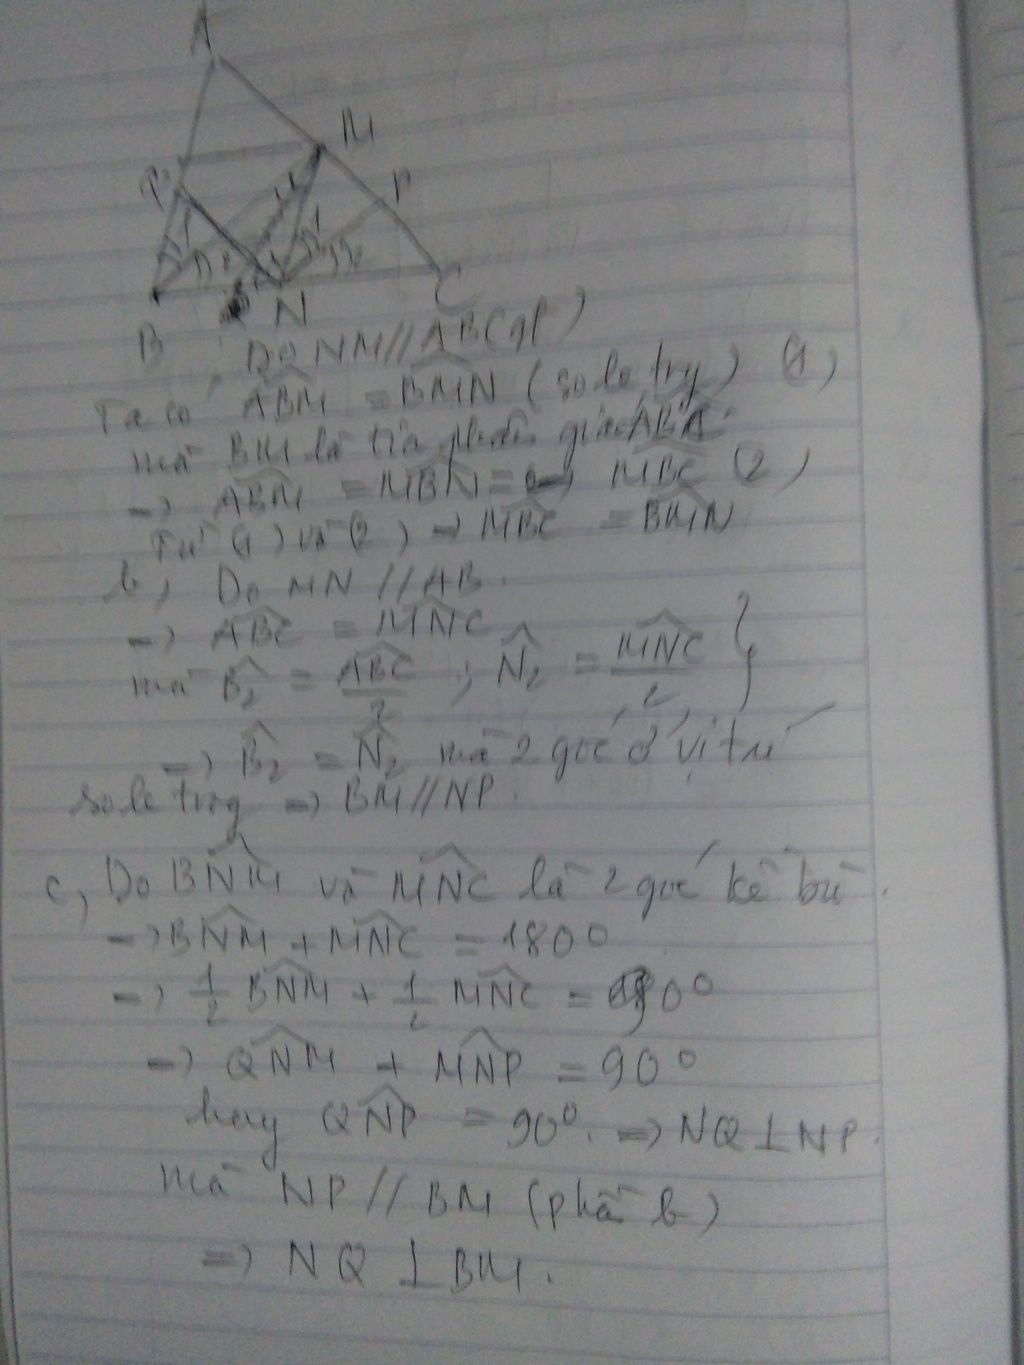 A
M
P
B
N
C
Do NM // AB (gt)
Ta có ABM = BMN (so le trg) (1)
mà BM là tia phân giác
=> ABM = MBN = MBC (2)
Từ (1) và (2) => MBC = BMN
b, Do MN // AB.
=> ABC = MNC
mà B2 = ABC/2 ; N2 = MNC/2 }
=> B2 = N2 mà 2 góc ở vị trí
so le trog => BM // NP.
c, Do BNM và MNC là 2 góc kề bù.
=> BNM + MNC = 180°
=> 1/2 BNM + 1/2 MNC = 90°
=> QNM + MNP = 90°
hay QNP = 90°. => NQ ⊥ NP.
mà NP // BM (phần b)
=> NQ ⊥ BM.